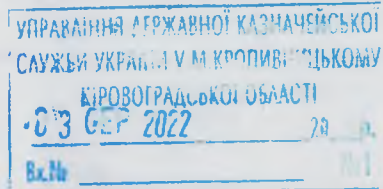 УПРАВЛІННЯ ДЕРЖАВНОЇ КАЗНАЧЕЙСЬКОЇ
СЛУЖБИ УКРАЇНИ У М КРОПИВНИЦЬКОМУ
КІРОВОГРАДСЬКОЇ ОБЛАСТІ
-03 СЕР 2022 20 р.
Вх.№